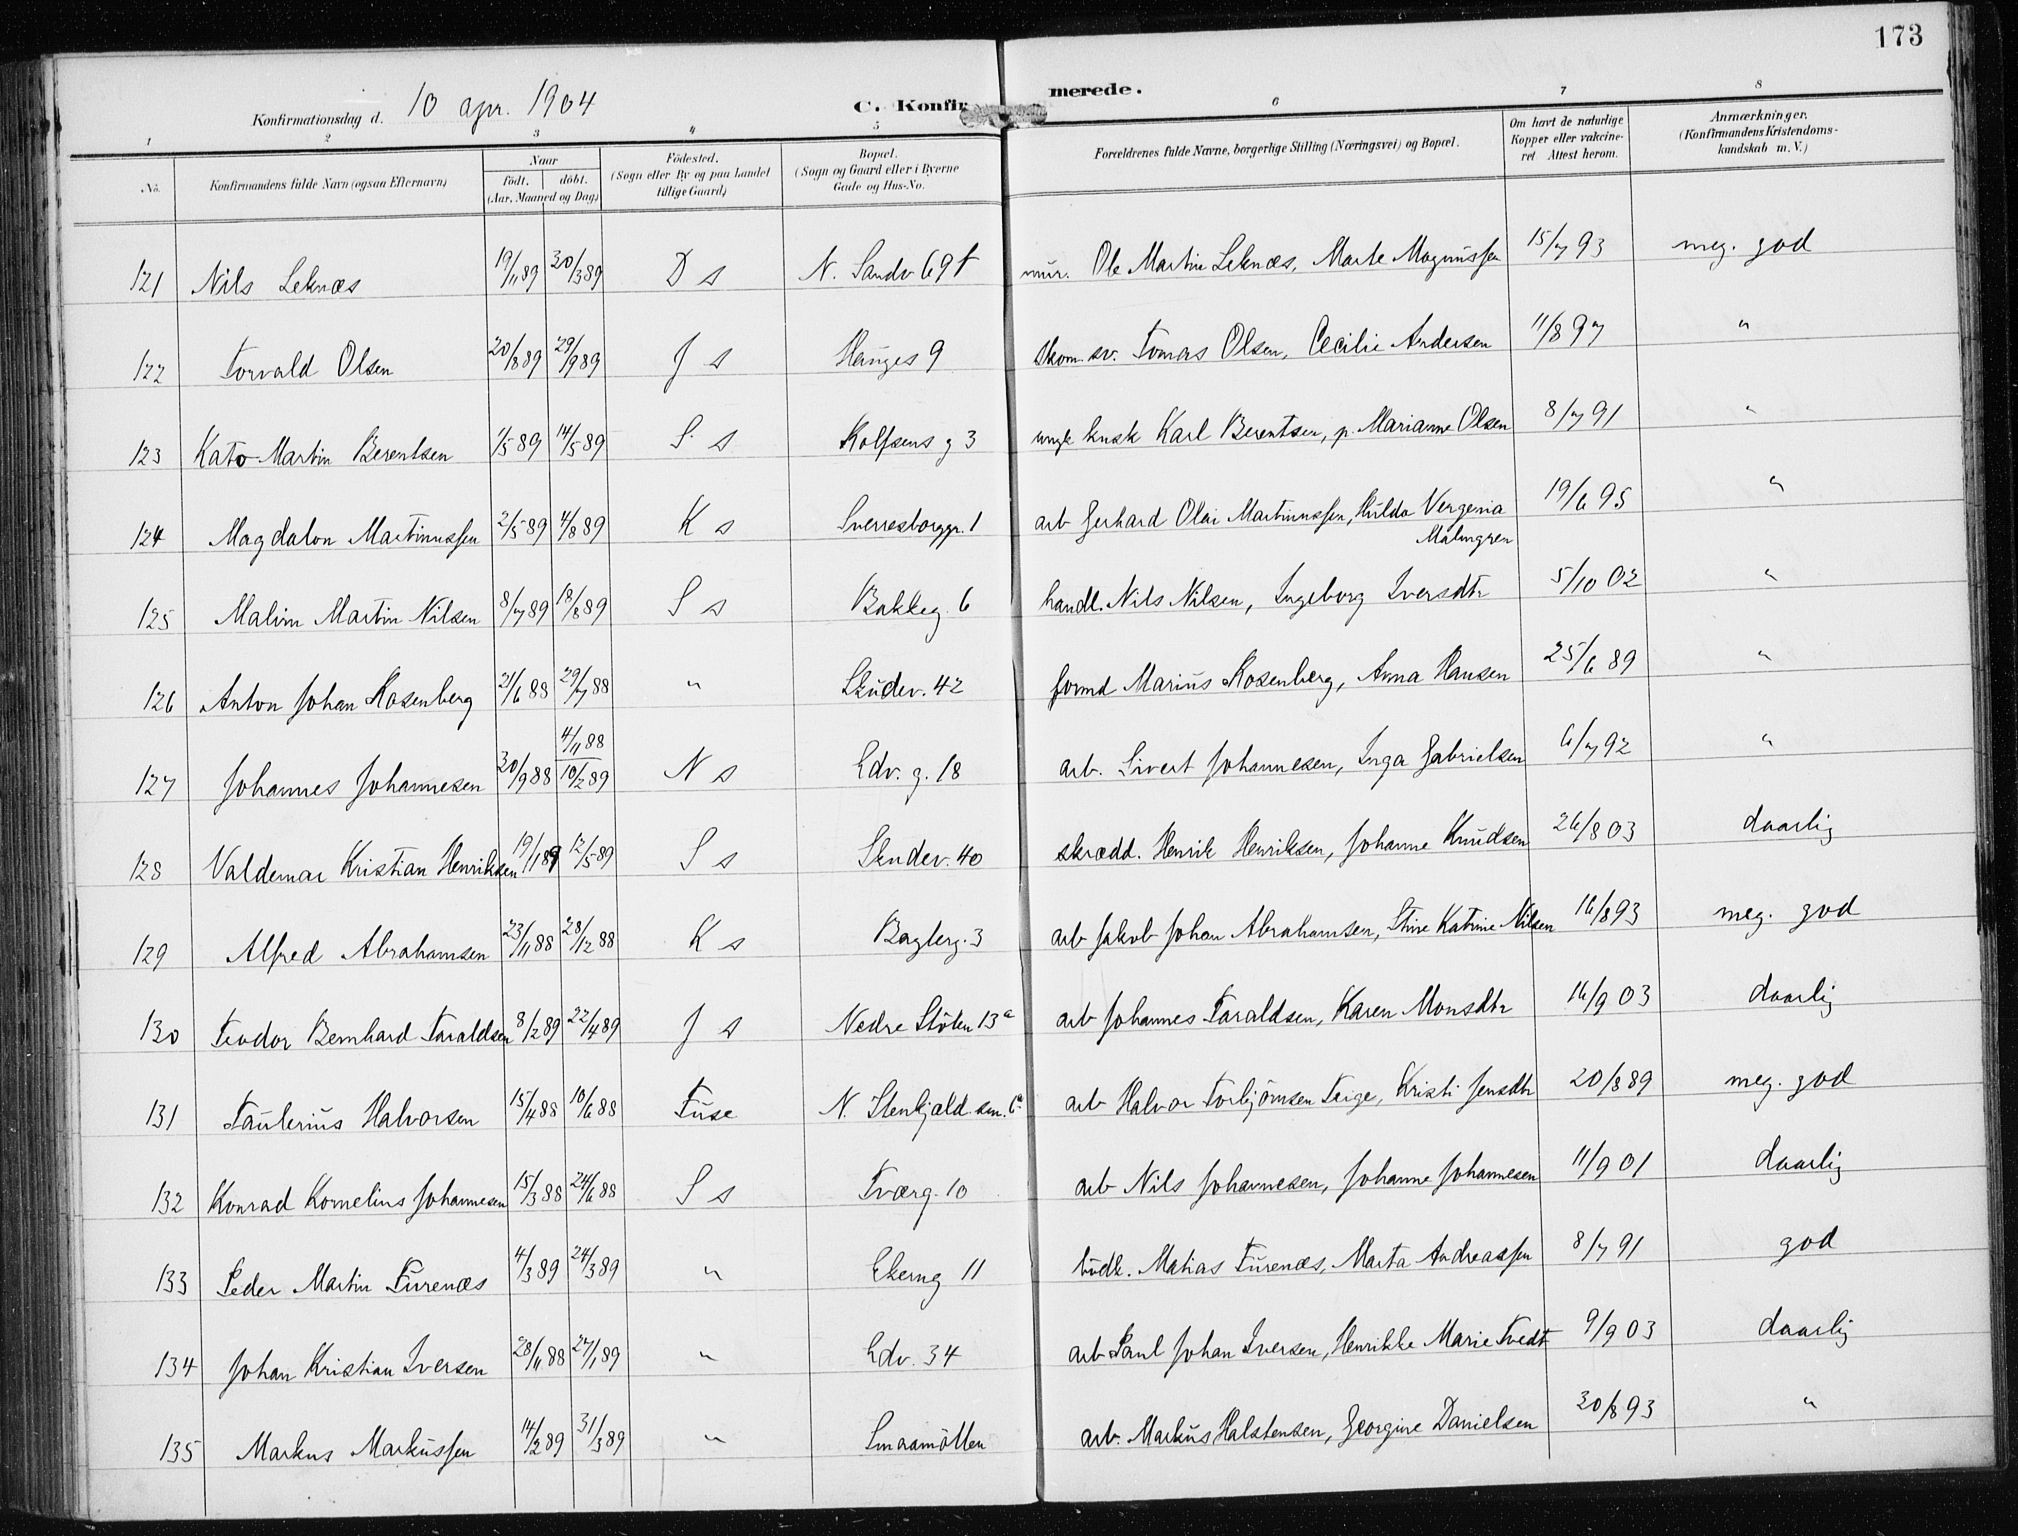 173
Konfirmationsdag d. 10 apr. 1904 C. Konfirmerede.
1 2 3 4 5 6 7 8
No. Konfirmandens fulde Navn (ogsaa Efternavn) Naar født. døbt. (Aar, Maaned og Dag) Fødested. (Sogn eller By og paa Landet tillige Gaard) Bopæl. (Sogn og Gaard eller i Byerne Gade og Hus-No. Forældrenes fulde Navne, borgerlige Stilling (Næringsvei) og Bopæl. Om havt de naturlige Kopper eller vakcineret. Attest herom. Anmærkninger. (Konfirmandens Kristendomskundskab m. V.)
121 Nils Leknæs 19/11 89 30/3 89 D s N. Sandv 69 f mur. Ole Martin Leknæs, Marte Magnussen 15/7 93 meg. god
122 Torvald Olsen 20/8 89 29/9 89 J s Hauges 9 skom. sv. Tomas Olsen, Cecilie Andersen 11/8 97 "
123 Kato Martin Berentsen 1/5 89 14/5 89 S s Rolfsens g 3 ungk kusk Karl Berentsen, p. Marianne Olsen 8/7 91 "
124 Magdalon Martinussen 2/5 89 4/8 89 K s Sverresborggr. 1 arb Gerhard Olai Martinussen, Hulda Vergenia Malmgren 19/6 95 "
125 Malvin Martin Nilsen 8/7 89 18/8 89 S s Bakkeg. 6 handl. Nils Nilsen, Ingeborg Iversdtr 5/10 02 "
126 Anton Johan Rosenberg 21/6 88 29/7 88 " Skudev. 42 formd Marius Rosenberg, Anna Hansen 25/6 89 "
127 Johannes Johannesen 30/9 88 4/11 88 10/2 89 N s Edv. g. 18 arb. Sivert Johannesen, Inga Gabrielsen 6/7 92 "
128 Valdemar Kristian Henriksen 19/1 89 12/5 89 S s Skudev. 40 skrædd. Henrik Henriksen, Johanne Knudsen 26/8 03 daarlig
129 Alfred Abrahamsen 23/11 88 28/12 88 K s Baglerg. 3 arb Jakob Johan Abrahamsen, Stine Katrine Nilsen 16/8 93 meg. god
130 Teodor Bernhard Taraldsen 8/2 89 22/4 89 J s Nedre Stölen 13a arb Johannes Taraldsen, Karen Monsdtr 16/9 03 daarlig
131 Paulerius Halvorsen 15/4 88 10/6 88 Fuse N. Stenkjeld.sm. 6a arb Halvor Torbjörnsen Teige, Kristi Jensdtr 20/8 89 meg. god
132 Konrad Kornelius Johannesen 15/3 88 24/6 88 S s Tværg. 10 arb Nils Johannesen, Johanne Johannesen 11/9 01 daarlig
133 Peder Martin Furenæs 4/3 89 24/3 89 " Ekerng 11 budk. Matias Furenæs, Marta Andreassen 8/7 91 god
134 Johan Kristian Iversen 28/11 88 27/1 89 " Edv. 34 arb Paul Johan Iversen, Henrikke Marie Tvedt 9/9 03 daarlig
135 Markus Markussen 14/2 89 31/3 89 " Smaamöllen arb. Markus Halstensen, Georgine Danielsen 30/8 93 "